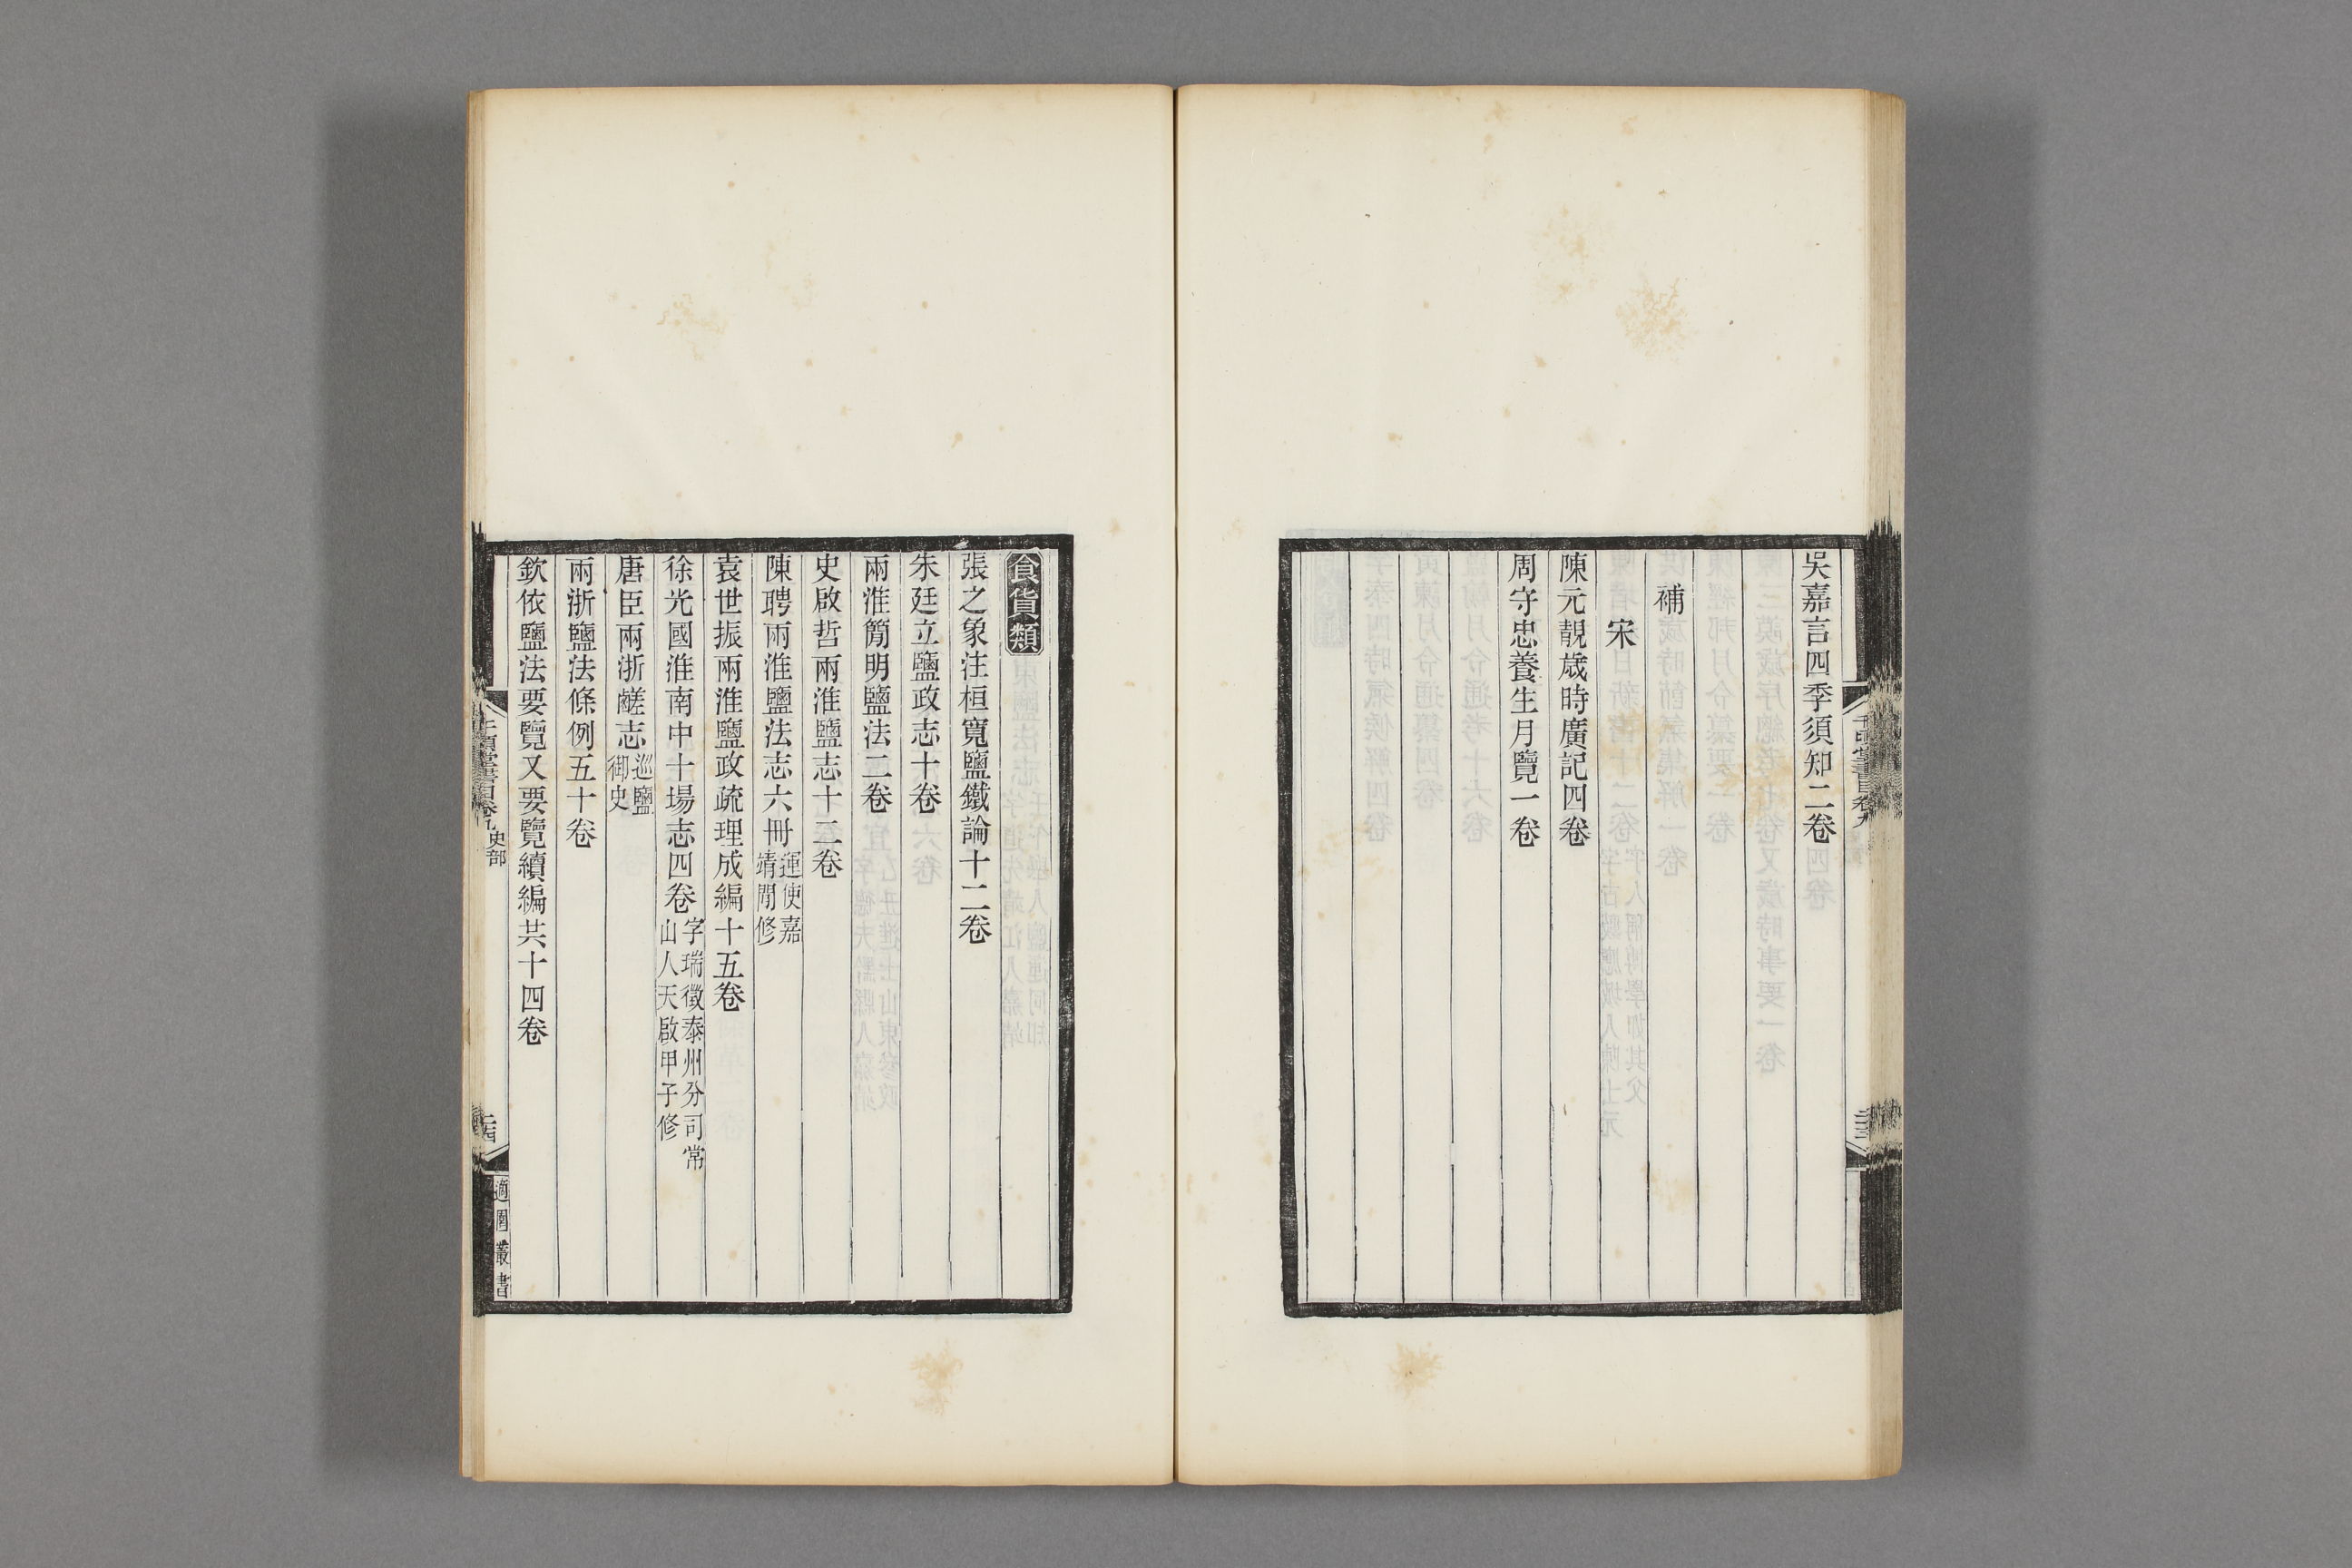 吳嘉言四季須知二卷
補
宋
陳元靚歲時廣記四卷
周守忠養生月覽一卷
食貨類
張之象注桓寬鹽鐵論十二卷
朱廷立鹽政志十卷
兩淮簡明鹽法二卷
史啟哲兩淮鹽志十二卷
陳聘兩淮鹽法志六冊運使嘉
靖閒修
袁世振兩淮鹽政疏理成編十五卷
徐光國淮南中十場志四卷字瑞徵泰州分司常
山人天啟甲子修
唐臣兩浙鹺志巡鹽
御史
兩浙鹽法條例五十卷
欽依鹽法要覽又要覽續編共十四卷
千頃堂書目卷九 史部
二十四
適園叢書